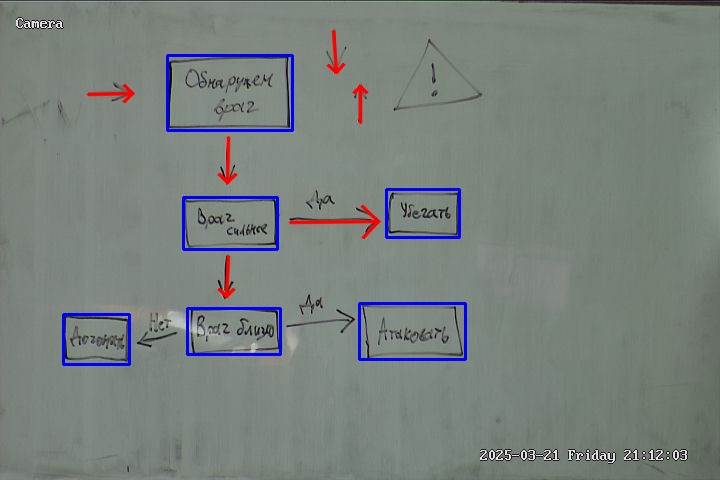 Camera
Обнаружен
враг
!
Враг
сильнее
Да
Убегать
Враг близко
Нет
Да
Догонать
Атаковать
2025-03-21 Friday 21:12:03